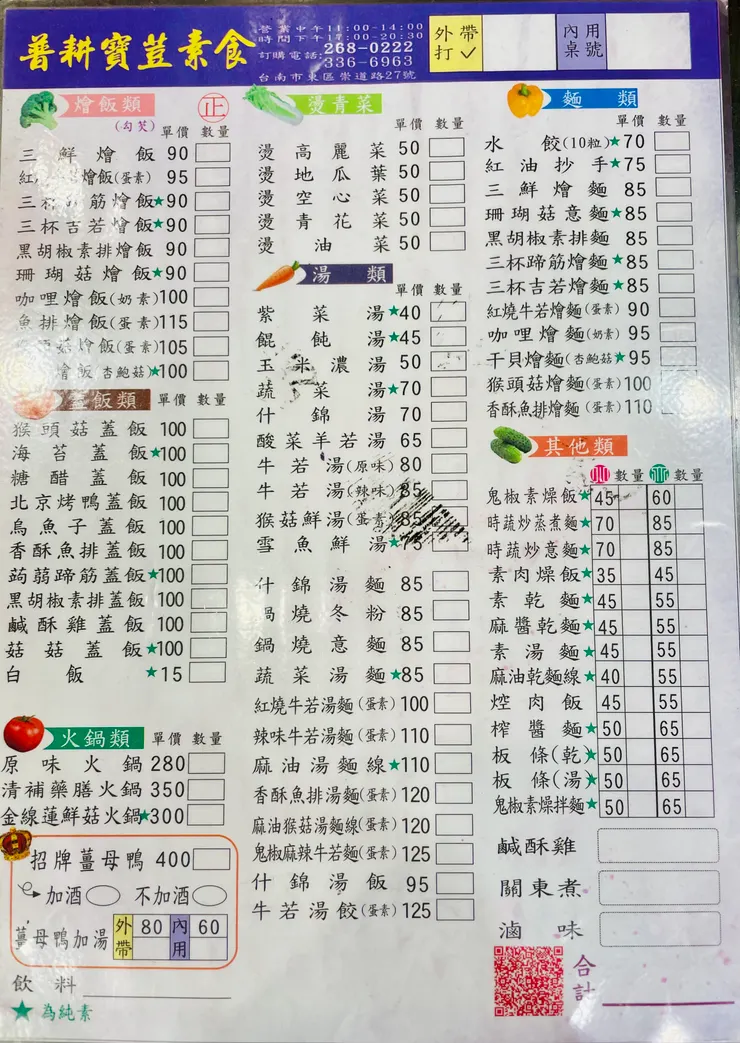 普耕寶荳素食
營業中午11:00-14:00
時間下午17:00-20:30
訂購電話:268-0222
336-6963
台南市東區崇道路27號
外帶打✓
內用桌號
燴飯類
(勾芡)
正
單價 數量
三鮮燴飯 90
紅燴飯(蛋素) 95
三杯筋燴飯★90
三杯吉若燴飯★90
黑胡椒素排燴飯 90
珊瑚菇燴飯★90
咖哩燴飯(奶素)100
魚排燴飯(蛋素)115
頭菇燴飯(蛋素)105
燴飯 杏鮑菇)★100
蓋飯類 單價 數量
猴頭菇蓋飯 100
海苔蓋飯★100
糖醋蓋飯 100
北京烤鴨蓋飯 100
烏魚子蓋飯 100
香酥魚排蓋飯 100
蒟蒻蹄筋蓋飯★100
黑胡椒素排蓋飯 100
鹹酥雞蓋飯 100
菇菇蓋飯★100
白飯 ★15
火鍋類 單價 數量
原味火鍋 280
清補藥膳火鍋 350
金線蓮鮮菇火鍋★300
招牌薑母鴨 400
加酒 不加酒
薑母鴨加湯 外帶 80 內用 60
飲料
★為純素
燙青菜
單價 數量
燙高麗菜 50
燙地瓜葉 50
燙空心菜 50
燙青花菜 50
燙油菜 50
湯類
單價 數量
紫菜湯★40
餛飩湯★45
玉米濃湯 50
蔬菜湯★70
什錦湯 70
酸菜羊若湯 65
牛若湯(原味) 80
牛若湯(辣味) 85
猴菇鮮湯(蛋素) 85
雪魚鮮湯★75
什錦湯麵 85
鍋燒冬粉 85
鍋燒意麵 85
蔬菜湯麵★85
紅燒牛若湯麵(蛋素) 100
辣味牛若湯麵(蛋素) 110
麻油湯麵線★110
香酥魚排湯麵(蛋素) 120
麻油猴菇湯麵線(蛋素) 120
鬼椒麻辣牛若麵(蛋素) 125
什錦湯飯 95
牛若湯餃(蛋素) 125
麵類
單價 數量
水餃(10粒)★70
紅油抄手★75
三鮮燴麵 85
珊瑚菇意麵★85
黑胡椒素排麵 85
三杯蹄筋燴麵★85
三杯吉若燴麵★85
紅燒牛若燴麵(蛋素) 90
咖哩燴麵(奶素) 95
干貝燴麵(杏鮑菇)★95
猴頭菇燴麵(蛋素) 100
香酥魚排燴麵(蛋素) 110
其他類
小 數量 大 數量
鬼椒素燥飯★45 60
時蔬炒蒸煮麵★70 85
時蔬炒意麵★70 85
素肉燥飯★35 45
素乾麵★45 55
麻醬乾麵★45 55
素湯麵★45 55
麻油乾麵線★40 55
焢肉飯 45 55
榨醬麵★50 65
板條(乾)★50 65
板條(湯)★50 65
鬼椒素燥拌麵★50 65
鹹酥雞
關東煮
滷味
合計